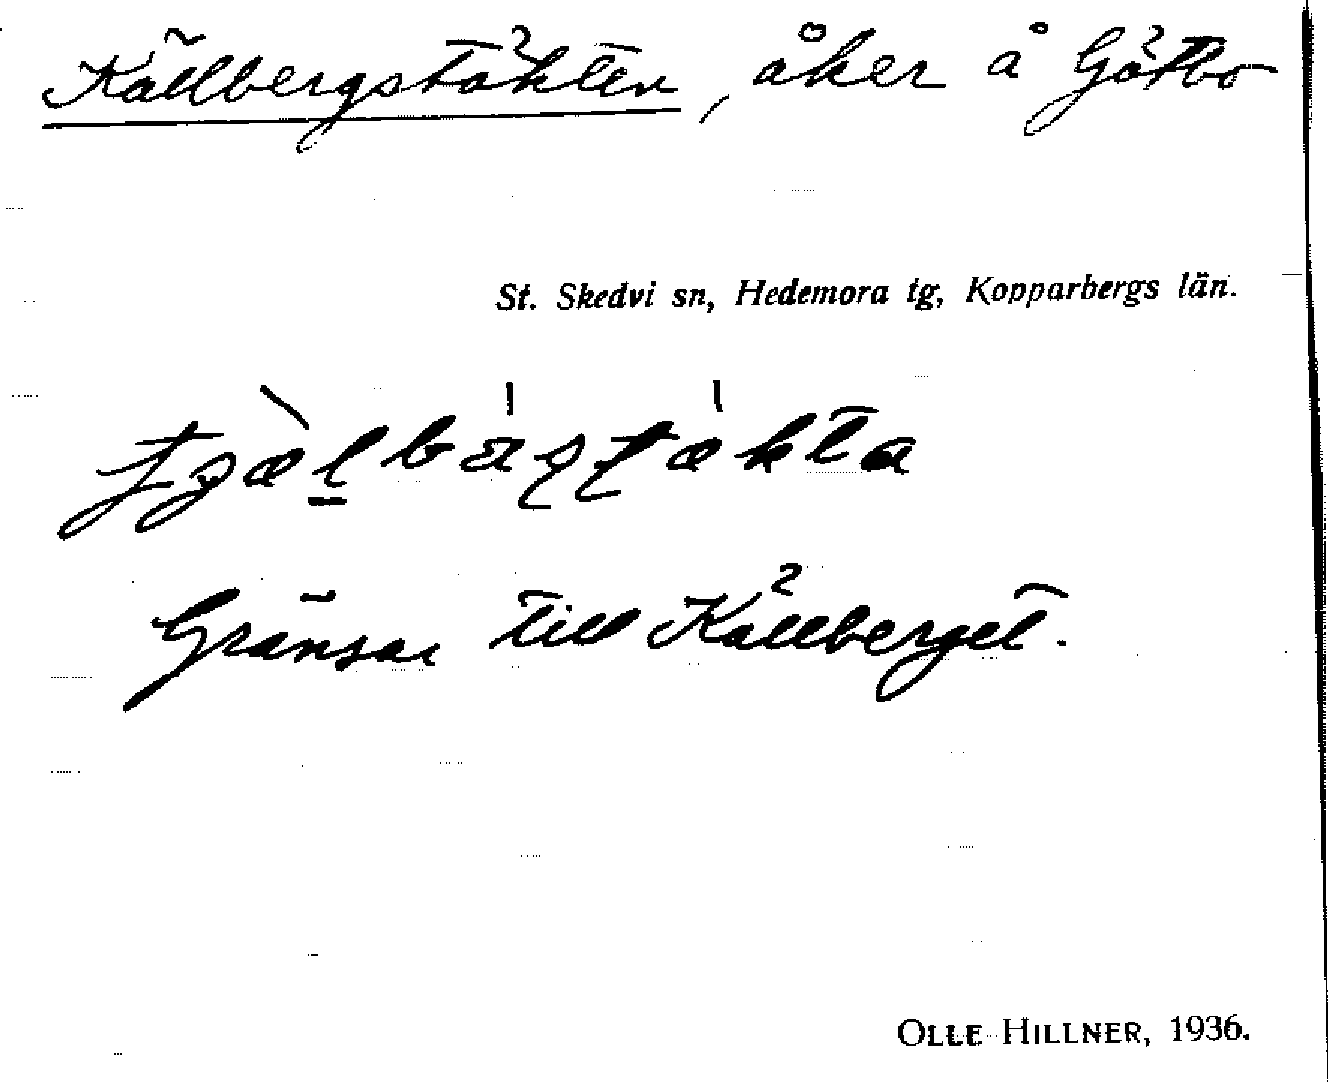 Källbergstäkten, åker å Götbo
St. Skedvi sn, Hedemora tg, Kopparbergs län.
Gränsar till Källberget.
OLLE HILLNER, 1936.